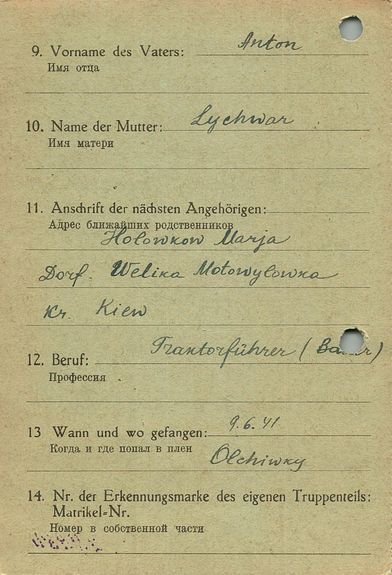 9. Vorname des Vaters: Anton
Имя отца
10. Name der Mutter: Lychwar
Имя матери
11. Anschrift der nächsten Angehörigen:
Адрес ближайших родственников
Holowkow Marja
Dorf. Welika Motowylowka
Kr. Kiew
12. Beruf: Traktorführer (Bauer)
Профессия
13 Wann und wo gefangen: 9.6.41
Когда и где попал в плен
Olchiwky
14. Nr. der Erkennungsmarke des eigenen Truppenteils:
Matrikel-Nr.
Номер в собственной части